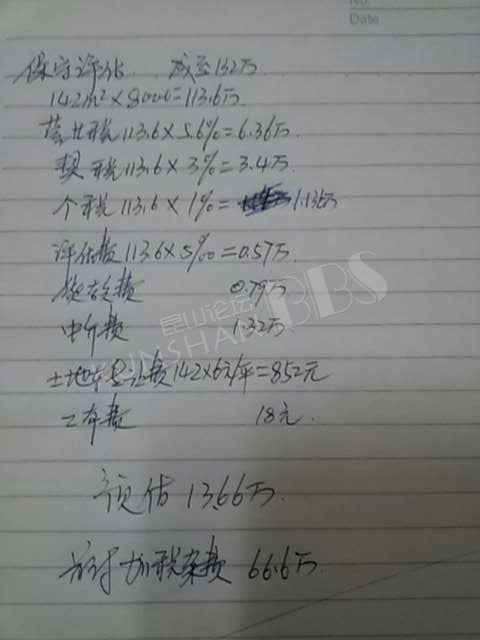 No.
Date
保守评估 成交132万
142m²×8000=113.6万
营业税113.6×5.6%=6.36万
契税113.6×3%=3.4万
个税113.6×1%= 1.136万
评估费113.6×5‰=0.57万
0.79万
中介费 1.32万
土地出让费142×6元/年=852元
工本费 18元
预估 13.66万
首付加税杂费 66.6万
昆山论坛
KUNSHAN BBS